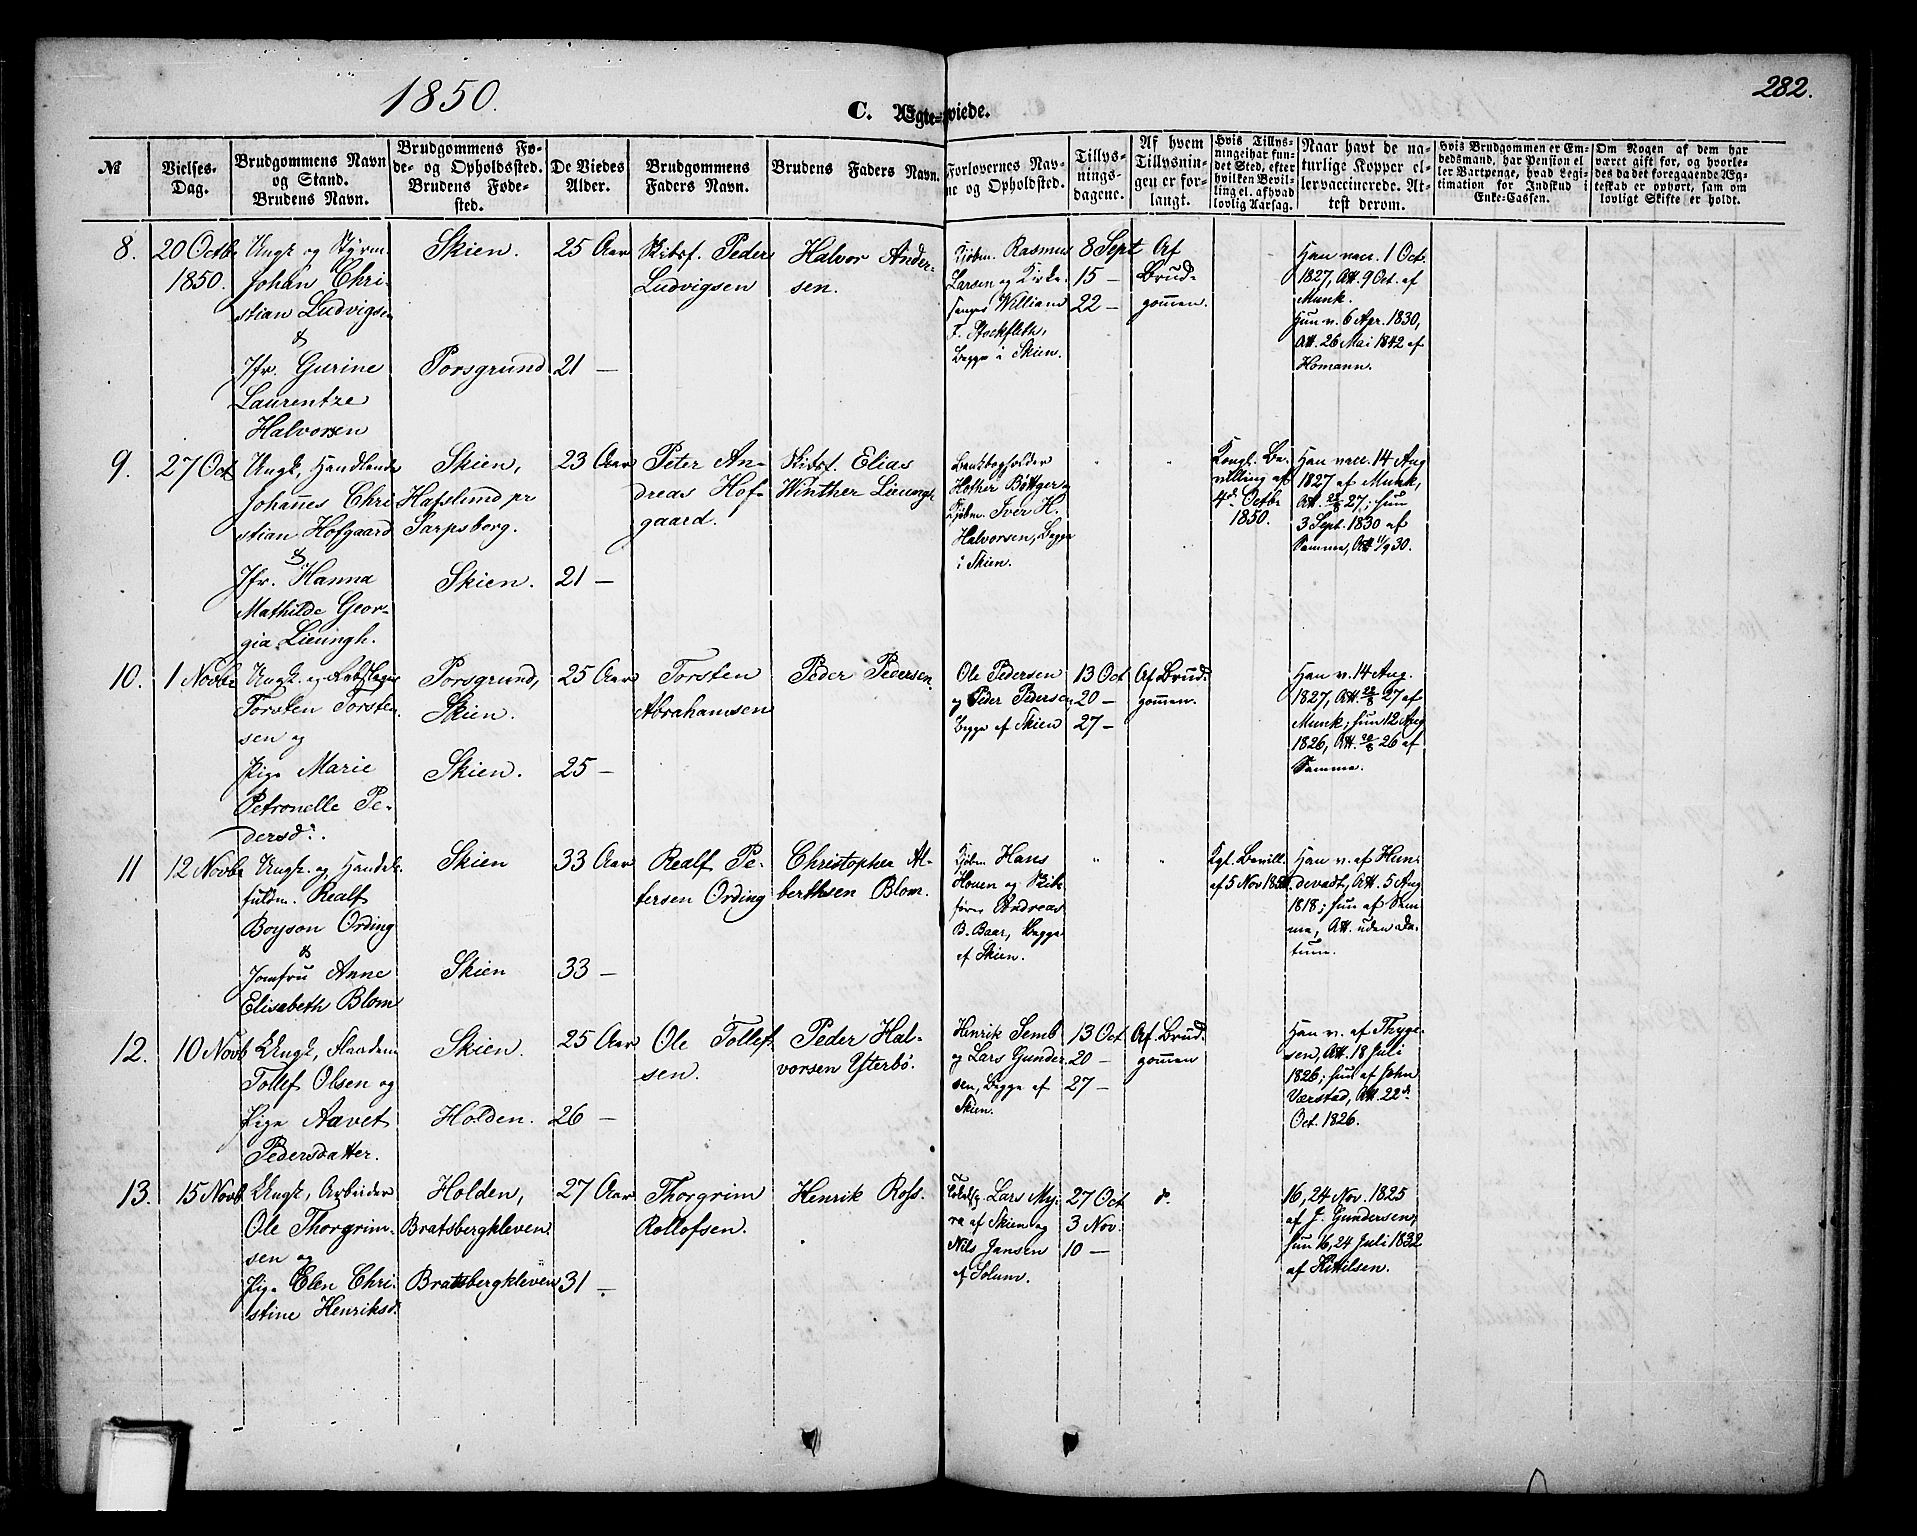 1850.
C. Ægte-viede.
282.
№
Vielses-
Dag.
Brudgommens Navn
og Stand.
Brudens Navn.
Brudgommens Fø-
de- og Opholdssted.
Brudens Føde-
sted.
De Viedes
Alder.
Brudgommens
Faders Navn.
Brudens Faders Navn.
Forlovernes Nav-
ne og Opholdsted.
Tillys-
nings-
dagene.
Af hvem
Tillysnin-
gen er for-
langt.
Hvis Tillys-
ningei har fun-
det Sted, efter
hvilken Bevil-
ling el. af hvad
lovlig Aarsag.
Naar havt de na-
turlige Kopper el-
ler vaccinerede. At-
test derom.
Hvis Brudgommen er Em-
bedsmand, har Pension el-
ler Vartpenge, hvad Legi-
timation for Indskud i
Enke-Cassen.
Om Nogen af dem har
været gift før, og hvorle-
des da det foregaaende Æg-
teskab er ophørt, sam om
lovligt Skifte er holdt.
8.
20 Octbr
1850.
Ungk. og Styrm.
Johan Chri-
stian Ludvigsen
&
Jfr. Gurine
Laurentze
Halvorsen
Skien.
Porsgrund
25 Aar
21 —
Skibsf. Peder
Ludvigsen
Halvor Ander-
sen.
Kjøbm. Rasmus
Larsen og Kirke-
sanger William
F. Stockfleth,
Begge i Skien.
8 Sept
15 —
22 —
Af
Brud-
gommen.
Han vacc. 1 Oct.
1827, Att. 9 Oct. af
Munk.
Hun v. 6 Apr. 1830,
Att. 26 Mai 1842 af
Homann.
9.
27 Oct
Ungk., Handlende
Johannes Chri-
stian Hofgaard
&
Jfr. Hanna
Mathilde Geor-
gia Lieungh.
Skien,
Hafslund pr
Sarpsborg.
Skien.
23 Aar
21 —
Peter An-
dreas Hof-
gaard.
Skibsf. Elias
Winther Lieungh
Hother Bøttger
Kjøbm. Iver H.
Halvorsen, Begge
i Skien.
"
"
Kongl. Be-
villing af
4d. Octbr
1850.
Han vacc. 14 Aug
1827 af Munk,
Att. 28/8 27; hun
3 Sept. 1830 af
Samme, Att 11/9 30.
10.
1 Novbr
Ungk. og
Torsten Torsten-
sen og
Pige Marie
Petronelle Pe-
dersd.
Porsgrund,
Skien.
Skien.
25 Aar
25 —
Torsten
Abrahamsen
Peder Pedersen.
Ole Pedersen
og Peder Pedersen,
Begge af Skien
13 Oct
20 —
27 —
Af Brud-
gommen.
Han v. 14 Aug.
1827, Att. 28/8 27 af
Munk; hun 12 Aug
1826, Att. 20/8 26 af
Samme.
11
12 Novbr
Ungk. og Handels-
fuldm. Realf
Boyson Ording
&
Jomfru Anne
Elisabeth Blom
Skien
Skien
33 Aar
33 —
Realf Pe-
tersen Ording
Christopher Al-
berthsen Blom.
Kjøbm. Hans
Houen og Skibs-
fører Andreas
B. Baar, Begge
af Skien.
"
"
Kgl. Bevill.
af 5 Nov 1850.
Han v. af Hun-
devadt, Att. 5 Aug
1818; hun af Sam-
me, Att. uden Da-
tum.
12.
10 Novb
Ungk.,
Tollef Olsen og
Pige Aavet
Pedersdatter.
Skien.
Holden.
25 Aar
26 —
Ole Tollef-
sen.
Peder Hal-
vorsen Ytterbø.
Henrik Semb
og Lars Gunder-
sen, Begge af
Skien.
13 Oct
20 —
27 —
Af Brud-
gommen
Han v. af Thyge-
sen, Att. 18 Juli
1826; hun af John
Værstad, Att. 22d.
Oct. 1826.
13.
15 Novb
Ungk., Arbeider
Ole Thorgrim-
sen og
Pige Elen Chri-
stine Henriksd.
Holden,
Bratsbergkleven.
Bratsbergkleven
27 Aar
31 —
Thorgrim
Rollofsen.
Henrik Ross.
Lars My-
ra af Skien og
Nils Jansen
af Solum.
27 Oct
3 Nov.
10 —
d.
16, 24 Nov. 1825
af J. Gundersen,
hun 16, 24 Juli 1832
af Kittilsen.